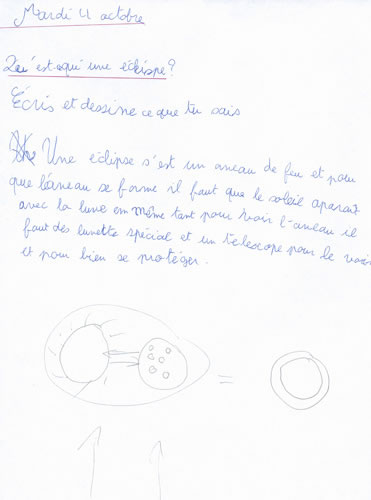 Mardi 4 octobre
Qu'est aqui une éclispe?
Écris et dessine ce que tu sais
Une éclipse s'est un aneau de feu et pour
que l'aneau se forme il faut que le soleil aparait
avec la lune em même tant pour voir l'aneau il
faut des lunette spécial et un telescope pour le voir
et pour bien se protéger.
=